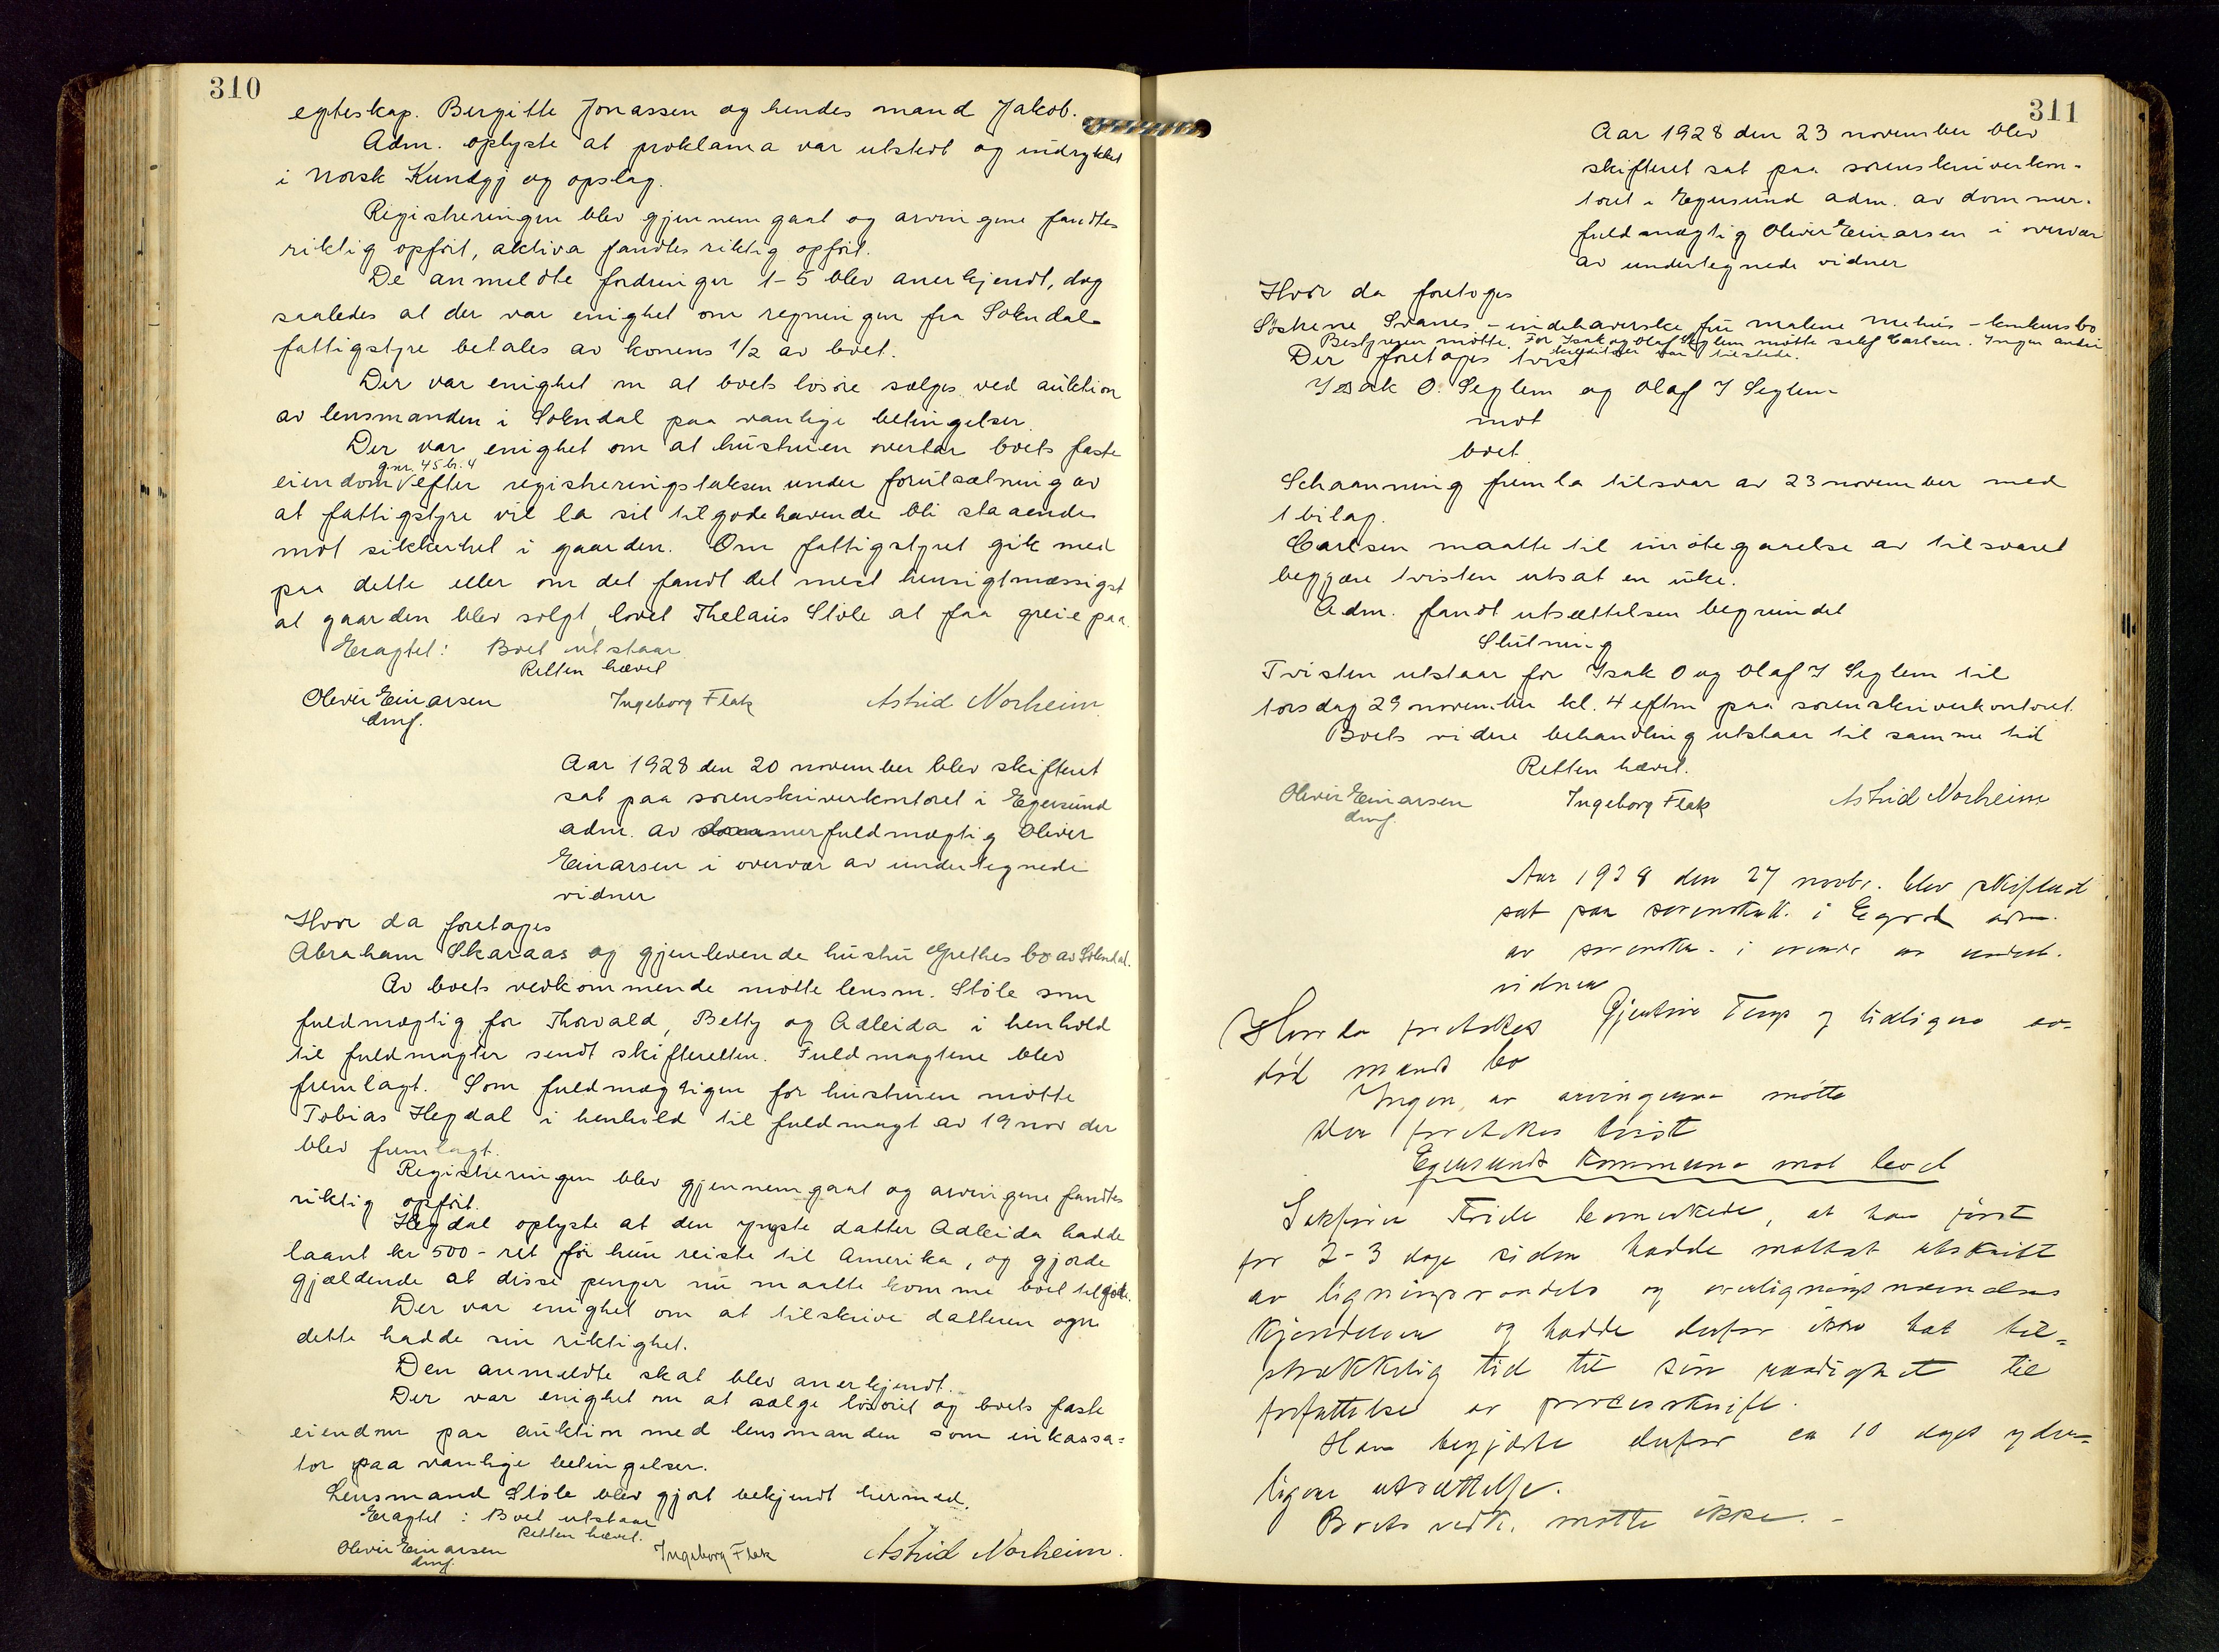 310
egteskap. Bergitte Jonassen og hendes mand Jakob.
Adm. oplyste at proklama var utstedt og indrykket
i Norsk Kundgj og opslag.
Registreringen blev gjennemgaat og arvingene fandtes
riktig opført, aktiva fandtes riktig opført.
De anmeldte fordringer 1-5 blev anerkjendt, dog
saaledes at der var enighet om regningen fra Sokndal
fattigstyre betales av konens 1/2 av boet.
Der var enighet om at boets løsøre sælges ved auktion
av lensmanden i Sokndal paa vanlige betingelser.
Der var enighet om at hustruen overtar boets faste
gnr. 45 br. 4
eiendom V efter registreringstaksen under forutsætning av
at fattigstyre vil la sit tilgodehavende bli staaende
mot sikkerhet i gaarden. Om fattigstyret gik med
paa dette eller om det fandt det mest hensigtmæssigst
at gaarden blev solgt, lovet Thelaus Støle at faa greie paa.
Eragtet: Boet utstaar
Retten hævet
Oliver Einarsen Ingeborg Flak Astrid Norheim
dmf.
Aar 1928 den 20 november blev skifteret
sat paa sorenskriverkontoret i Egersund
adm. av dommerfuldmægtig Oliver
Einarsen i overvær av undertegnede
vidner
Hvor da foretoges
Abraham Skaraas og gjenlevende hustru Grethes bo av Sokndal.
Av boets vedkommende møtte lensm. Støle som
fuldmægtig for Thorvald, Betty og Adleida i henhold
til fuldmagter sendt skifteretten. Fuldmagtene blev
fremlagt. Som fuldmægtigen for hustruen møtte
Tobias Hegdal i henhold til fuldmagt av 19 nov der
blev fremlagt.
Registreringen blev gjennemgaat og arvingene fandtes
riktig opført.
Hegdal oplyste at den yngste datter Adleida hadde
laant kr 500 - ret før hun reiste til Amerika, og gjorde
gjældende at disse penger nu maatte komme boet tilgode.
Der var enighet om at tilskrive datteren ogm
dette hadde sin riktighet.
Den anmeldte skat blev anerkjendt.
Der var enighet om at sælge løsøret og boets faste
eiendom paa auktion med lensmanden som inkassa=
tor paa vanlige betingelser.
Lensmand Støle blev gjort bekjendt hermed.
Eragtet: Boet utstaar
Retten hævet.
Oliver Einarsen Ingeborg Flak Astrid Norheim.
dmf.
311
Aar 1928 den 23 november blev
skifteret sat paa sorenskriverkon-
toret i Egersund adm. av dommer-
fuldmægtig Oliver Einarsen i overvær
av undertegnede vidner
Hvor da foretoges
Søstrene Svanes - indehaverske fru Malene Mehus - konkursbo
Bestyreren møtte. For Isak og Olaf Seglem møtte sakf Carlsen. Ingen andre
kreditorer var tilstede.
Der foretoges tvist
Isak O. Seglem og Olaf I Seglem
mot
boet.
Schaanning fremla tilsvar av 23 november med
1 bilag.
Carlsen maatte til imøtegaaelse av tilsvaret
begjære tvisten utsat en uke.
Adm. fandt utsættelsen begrundet
Slutning
Tvisten utstaar for Isak O og Olaf I Seglem til
torsdag 29 november kl. 4 eftm paa sorenskriverkontoret.
Boets videre behandling utstaar til samme tid
Retten hævet.
Oliver Einarsen Ingeborg Flak Astrid Norheim
dmf.
Aar 1928 den 27 novbr. blev skifteret
sat paa sorenskrk. i Egersd adm.
av sorenskr. i overvær av undert.
vidner
Hvor da foretokes Gjertine og tidligere av-
død mands bo
Ingen av arvingerne møtte
Der foretokes tvist
Egersunds kommune mot boet
Sakfører bemerkede, at han først
for 2-3 dage siden hadde mottat utskrift
av ligningsraadets og overligningsnævndens
kjendelser og hadde derfor ikke hat til=
strækkelig tid til sin raadighet til
forfattelse av processkrift.
Han begjærte derfor ca 10 dages yder=
ligere utsættelse.
Boets vedk. møtte ikke. -